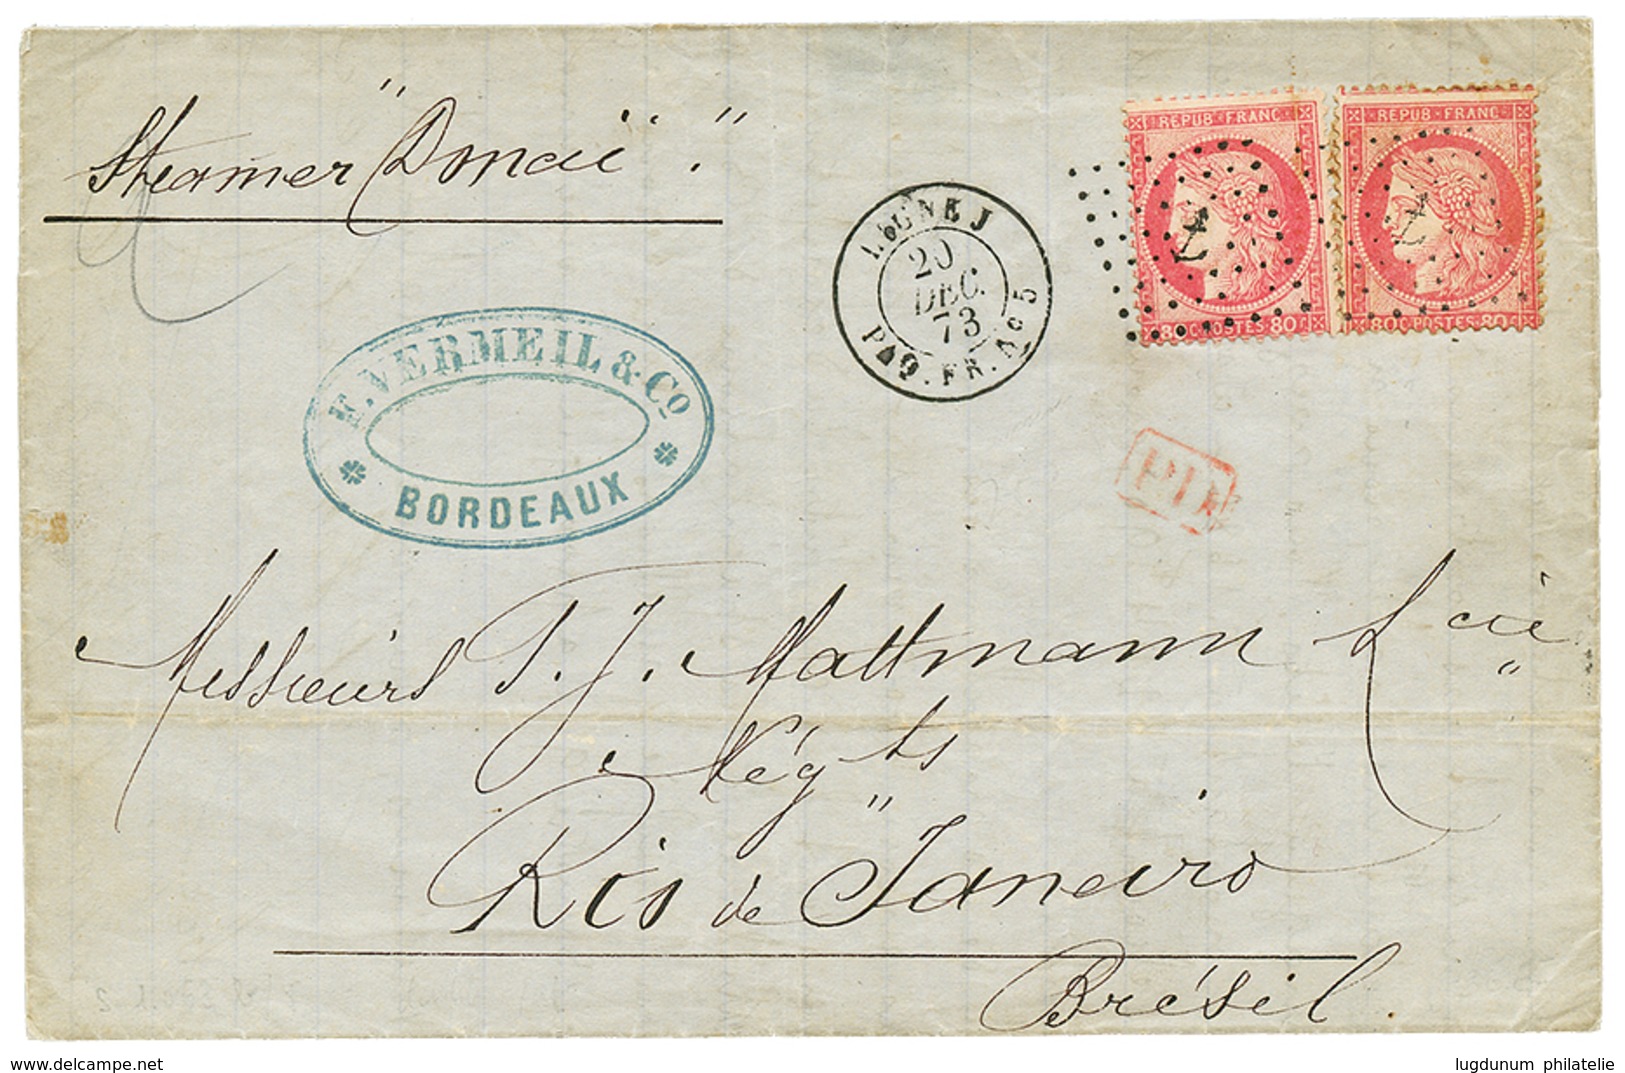 Steamer "Donaï".
REPUB · FRANC
REPUB · FRANC
80 C. POSTES 80
80 C. POSTES 80
LIGNE J
20
DEC.
73
PAQ. FR. No 5
VERMEIL & Co
BORDEAUX
Messieurs J. J. Mattmann & Cie
Négts
Rio de Janeiro
Brésil
www.delcampe.net
lugdunum philatelie